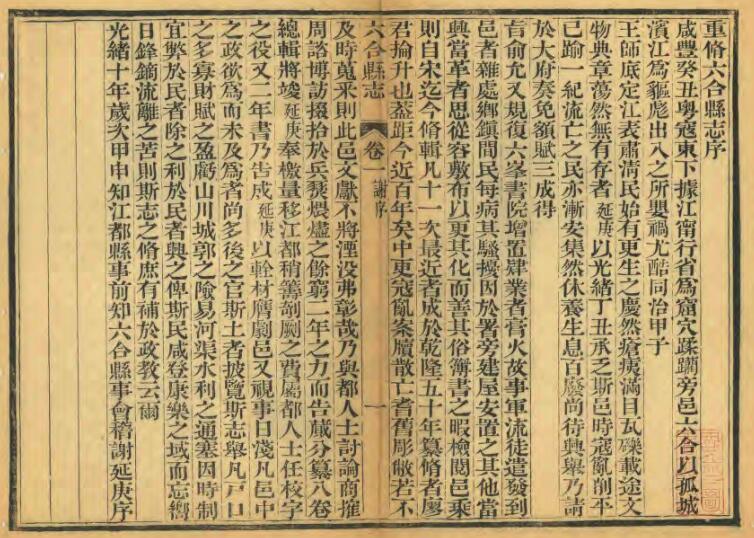 重脩六合縣志序
咸豐癸丑粤寇東下據江甯行省爲窟穴蹂躪旁邑六合以孤城
濱江爲驅彪出入之所嬰禍尤酷同治甲子
王師底定江表肅淸民始有更生之慶然瘡痍滿目瓦礫載途文
物典章蕩然無有存者延庚以光緒丁丑承乏斯邑時寇亂削平
已踰一紀流亡之民亦漸安集然休養生息百廢尚待興舉乃請
於大府奏免額賦三成得
旨俞允又規復六峯書院增置肄業者膏火故事軍流徒遣發到
邑者雜處鄉鎮間民每病其騷擾因於署旁建屋安置之其他當
興當革者思從容敷布以更其化而善其俗簿書之暇檢閱邑乘
則自宋迄今脩輯凡十一次最近者成於乾隆五十年纂脩者廖
君掄升也葢距今近百年矣中更寇亂案牘散亡耆舊彫敝若不
六合縣志 卷一 謝序 一
及時蒐采則此邑文獻不將湮没弗彰哉乃與都人士討論商搉
周諮博訪掇拾於兵燹煨燼之餘窮二年之力而告蕆分纂八卷
總輯將竣延庚奉檄量移江都稍籌剞劂之費屬都人士任校字
之役又二年書乃告成延庚以輇材膺劇邑又視事日淺凡邑中
之政欲爲而未及爲者尚多後之官斯土者披覽斯志舉凡戸口
之多寡財賦之盈虧山川城郭之險易河渠水利之通塞因時制
宜弊於民者除之利於民者興之俾斯民咸登康樂之域而忘嚮
日鋒鏑流離之苦則斯志之脩庶有補於政教云爾
光緒十年歲次甲申知江都縣事前知六合縣事會稽謝延庚序